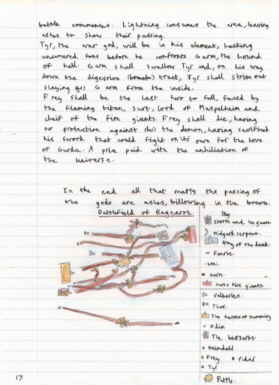 battle commences. Lightning consumes the area, leaving
ashes to show their passing.
Tyr, the war god, will be in his element, battling
unarmed, even before he confronts Garm, the hound
of hell. Garm shall swallow Tyr and, on his way
down the digestive tract, Tyr shall strike out
slaying Garm from the inside.
Frey shall be the last hero to fall, faced by
the flaming titan, Surt, lord of Muspelheim and
chief of the fire giants. Frey shall die, having
no protection against the demon, having
his sword that could fight on its own for the love
of Gerda. A price paid with the annihilation of
the universe.
In the end all that marks the passing of
the gods are ashes, billowing in the breeze.
Battlefield of Ragnarok
Key
Midgard serpent
King of the dead
Fenrir
Loki
Odin
Valkyries
Thor
Heimdall
Frey
Tyr
Battle
17